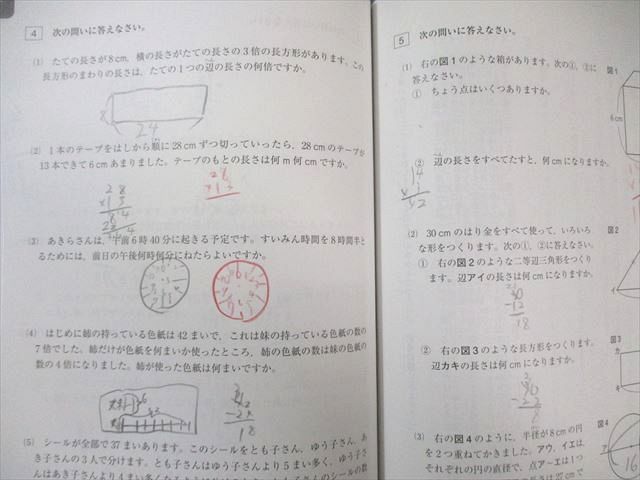 4 次の問いに答えなさい。
(1) たての長さが8cm、横の長さがたての長さの3倍の長方形があります。この
長方形のまわりの長さは、たての1つの辺の長さの何倍ですか。
8
24
(2) 1本のテープをはしから順に28cmずつ切っていったら、28cmのテープが
13本できて6cmあまりました。テープのもとの長さは何m何cmですか。
28
×13
84
(3) あきらさんは、午前6時40分に起きる予定です。すいみん時間を8時間半と
るためには、前日の午後何時何分にねたらよいですか。
(4) はじめに姉の持っている色紙は42まいで、これは妹の持っている色紙の数の
7倍でした。姉だけが色紙を何まいか使ったところ、姉の色紙の数は妹の色紙
の数の4倍になりました。姉が使った色紙は何まいですか。
18
(5) シールが全部で37まいあります。このシールをとも子さん、ゆう子さん、あ
き子さんの3人で分けます。とも子さんはゆう子さんより5まい多く、ゆう子さ
んはあき子さんより4まい多くなるように
5 次の問いに答えなさい。
(1) 右の図1のような箱があります。次の①、②に
答えなさい。
① ちょう点はいくつありますか。
図1
6cm
② 辺の長さをすべてたすと、何cmになりますか。
14
(2) 30cmのはり金をすべて使って、いろいろ
な形をつくります。次の①、②に答えなさい。
① 右の図2のような二等辺三角形をつくり
ます。辺アイの長さは何cmになりますか。
図2
イ
30
-12
18
② 右の図3のような長方形をつくります。
辺カキの長さは何cmになりますか。
図3
カ
キ
30
-22
8
(3) 右の図4のように、半径が8cmの円
を2つ重ねてかきました。アウ、イエは
それぞれの円の直径で、点アーエは1つ
図4
ア
16